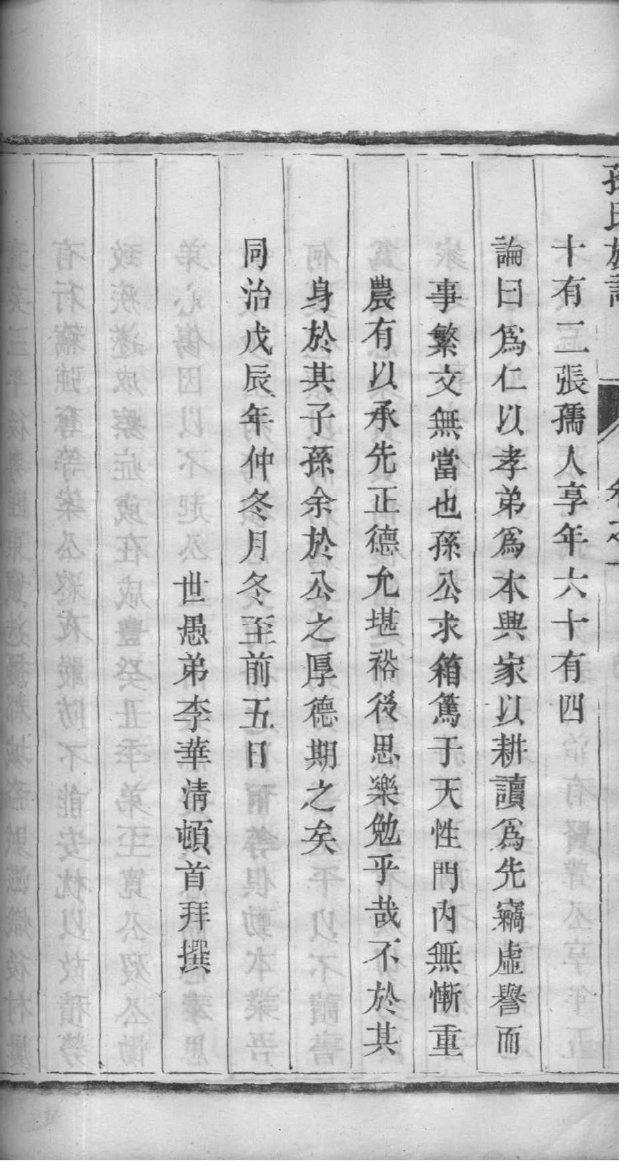 孫氏族譜 卷之一
十有二張孺人享年六十有四
論曰爲仁以孝弟爲本興家以耕讀爲先竊虛譽而
事繁文無當也孫公求箱篤于天性門內無慚重
農有以承先正德允堪裕後思樂勉乎哉不於其
身於其子孫余於公之厚德期之矣
同治戊辰年仲冬月冬至前五日
世愚弟李華清頓首拜撰